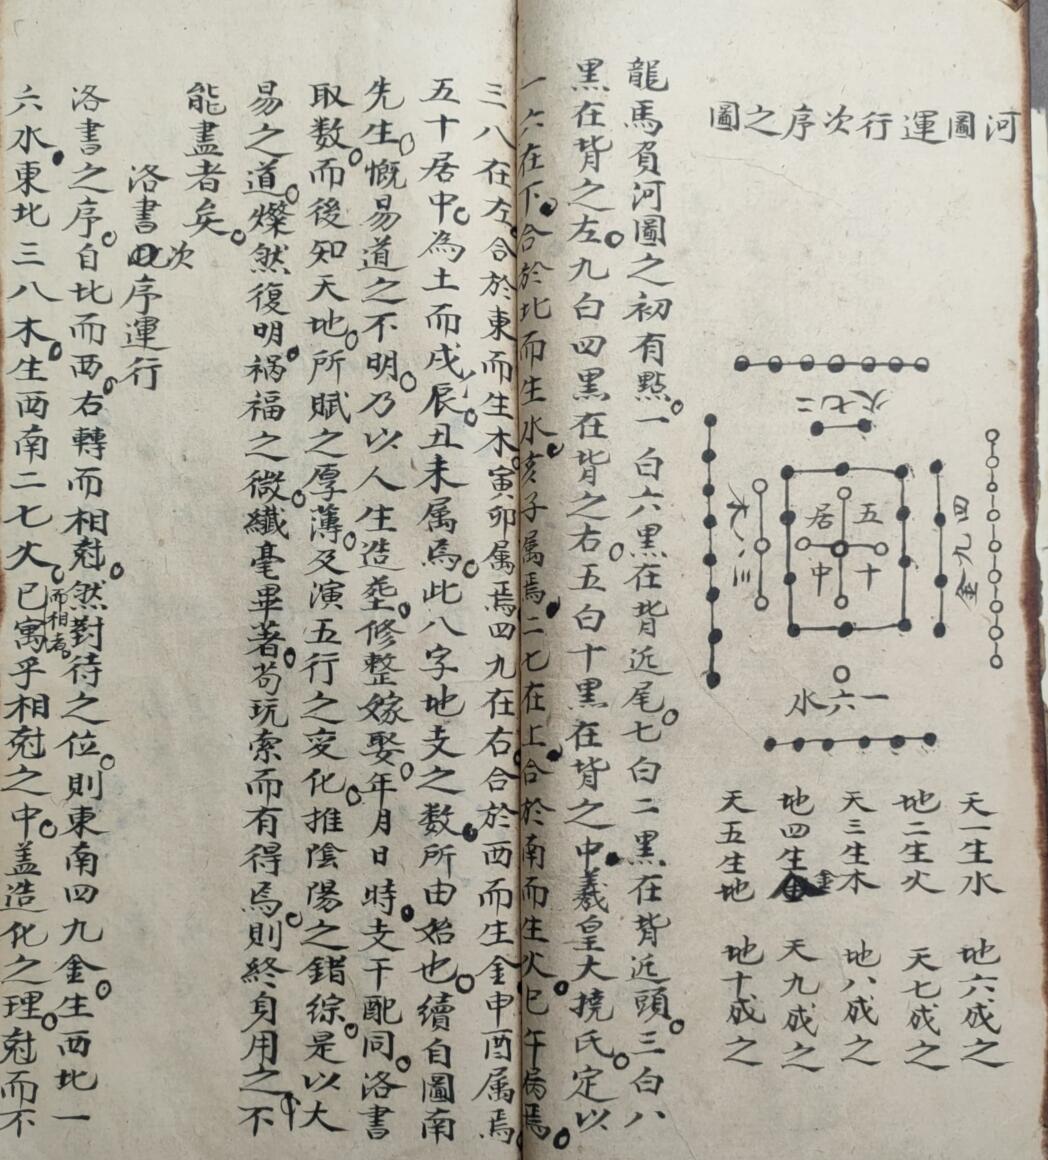 河圖運行次序之圖
二七火
三八木
五十
居中
四九金
一六水
天一生水 地六成之
地二生火 天七成之
天三生木 地八成之
地四生金 天九成之
天五生地 地十成之
龍馬負河圖之初有點。一白六黑在背近尾。七白二黑在背近頭。三白八
黑在背之左。九白四黑在背之右。五白十黑在背之中。羲皇大撓氏。定以
一六在下。合於北而生水。亥子属焉。二七在上。合於南而生火。巳午属焉。
三八在左。合於東而生木。寅卯属焉。四九在右合於西而生金申酉属焉。
五十居中。為土而戌辰丑未属焉。此八字地支之数。所由始也。續自圖南
先生。慨易道之不明。乃以人生造塟。修整嫁娶。年月日時。支干配同。洛書
取数。而後知天地。所賦之厚薄。及演五行之变化。推陰陽之錯綜。是以大
易之道。燦然復明。祸福之微。纖毫畢著。苟玩索而有得焉。則終身用之不
能盡者矣。
洛書次序運行
洛書之序。自北而西。右轉而相尅。然對待之位。則東南四九金。生西北一
六水。東北三八木。生西南二七火。而相者。已寓乎相尅之中。盖造化之理。尅而不